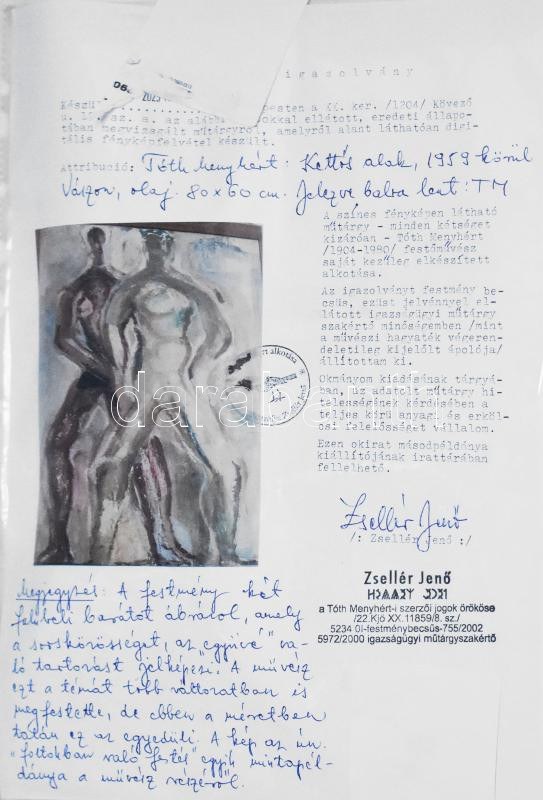 igazolvány
Készü pesten a XX. ker. /1204/ Kövező
u. sz. a. az alább okkal ellátott, eredeti állapo-
tában megvizsgált műtárgyról, amelyről alant láthatóan digi-
tális fényképfelvétel készült.
Attribúció: Tóth Menyhért: Kettős alak, 1959 körül
Vászon, olaj. 80x60 cm. Jelezve balra lent: TM
A színes fényképen látható
műtárgy - minden kétséget
kizáróan - Tóth Menyhért
/1904-1980/ festőművész
saját kezűleg elkészített
alkotása.
Az igazolványt festmény be-
csüs, ezüst jelvénnyel el-
látott igazságügyi műtárgy
szakértő minőségemben /mint
a művészi hagyaték végeren-
deletileg kijelölt ápolója/
állítottam ki.
Okmányom kiadásának tárgyá-
ban, az adatolt műtárgy hi-
telességének kérdésében a
teljes körű anyagi és erköl-
csi felelősséget vállalom.
Ezen okirat másodpéldánya
kiállítójának irattárában
fellelhető.
Zsellér Jenő
/: Zsellér Jenő :/
Zsellér Jenő
a Tóth Menyhért-i szerzői jogok örököse
/22.Kjö XX.11859/8. sz./
5234 0l-festménybecsüs-755/2002
5972/2000 igazságügyi műtárgyszakértő
Megjegyzés: A festmény két
felebeli barátot ábrázol, amely
a sorsközösséget, az "együvé" va-
ló tartozást jelképezi. A művész
ezt a témát több változatban is
megfestette, de ebben a méretben
talán ez az egyedüli. A kép az ún.
"foltokban való festés" egyik mintapél-
dánya a művész részéről.
darabanth